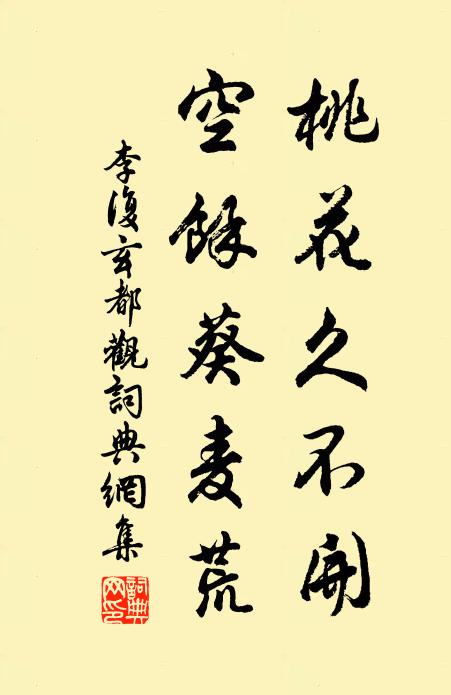 桃花久不開
空餘葵麦荒
李復玄都觀詞典網集
詞典网印